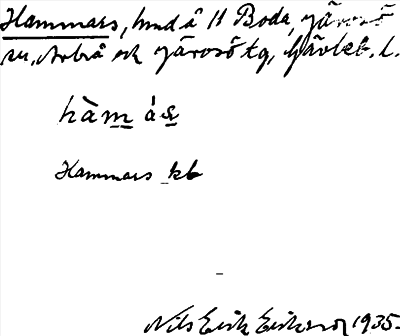 Hammars, hmd å 11 Boda, Järvsö
sn, Arbrå och Järvsö tg, Gävleb. l.
hàm ás
Hammars kb
Nils Erik Eriksson 1935.